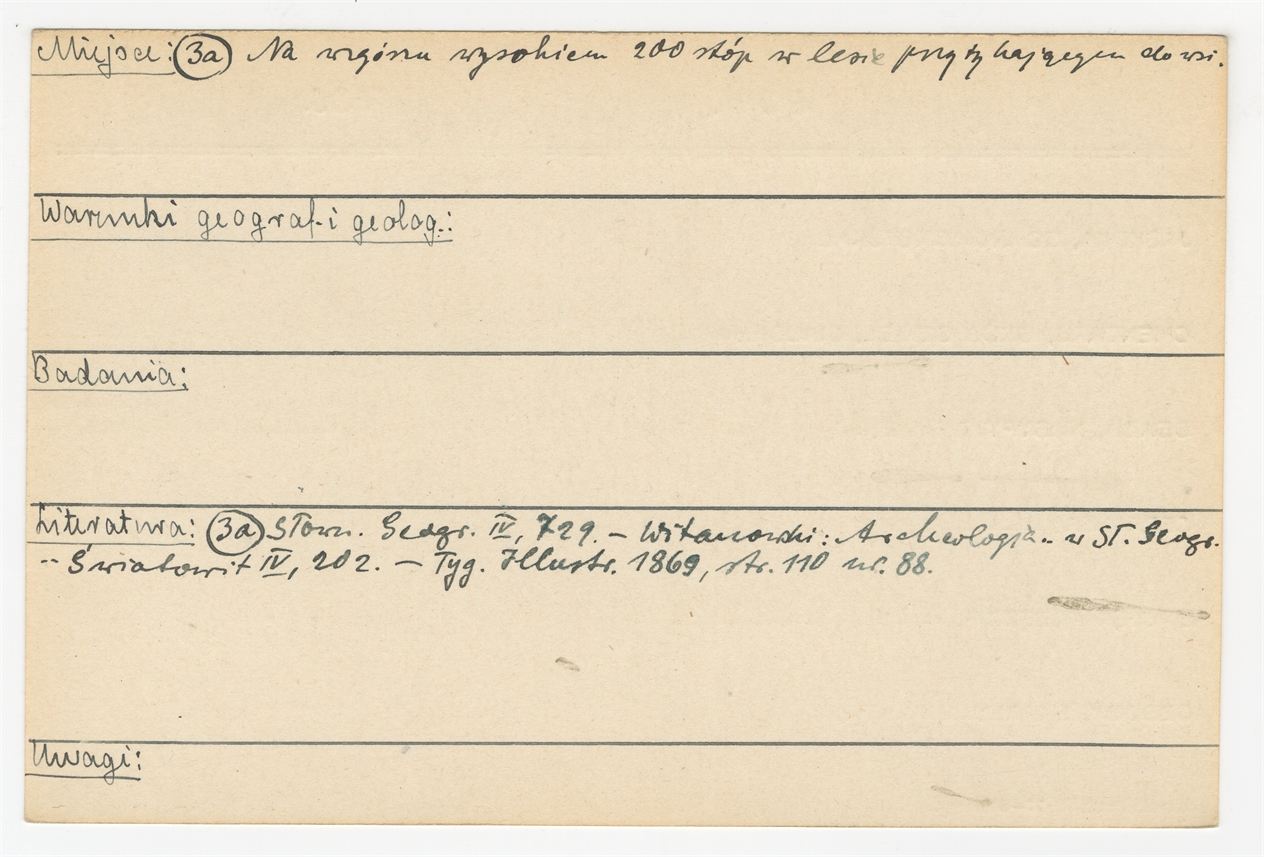 Miejsce: 3a Na wzgórzu wysokiem 200 stóp w lesie przytykającym do wsi.
Warunki geograf. i geolog.:
Badania:
Literatura: 3a Słown. Geogr. IV, 729. – Witanowski: Archeologja.. w Sł. Geogr.
-- Światowit IV, 202. – Tyg. Illustr. 1869, str. 110 nr. 88.
Uwagi: